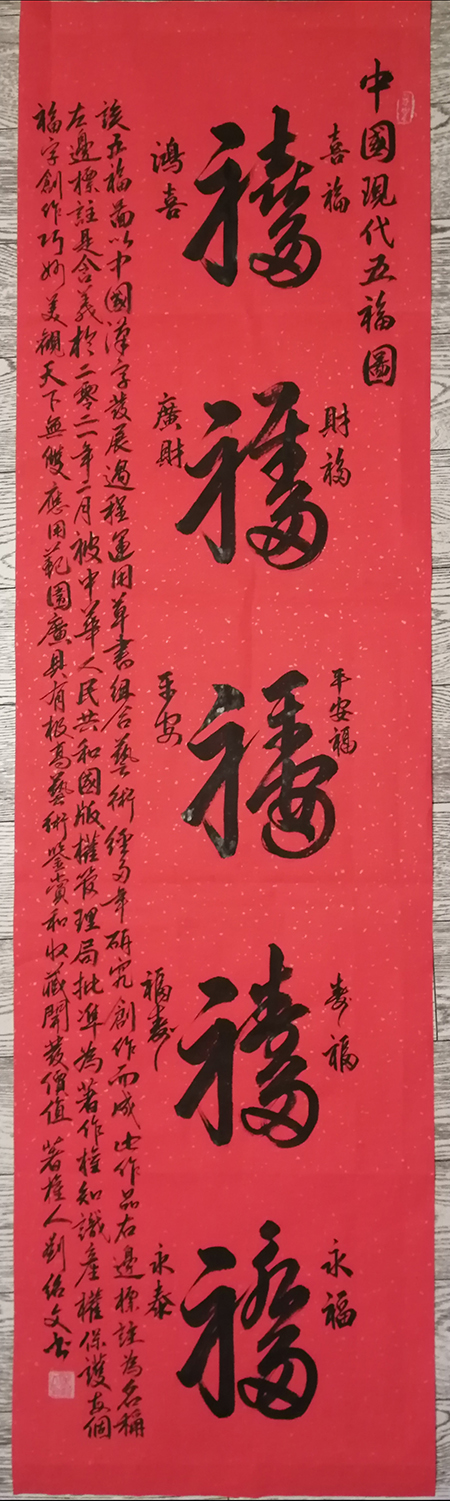 中國現代五福圖
喜福
財福
平安福
壽福
永福
福
福
福
福
福
鴻喜
廣財
平安
福壽
永泰
該五福圖以中國漢字發展過程運用草書組合藝術經多年研究創作而成此作品右邊標註為名稱
左邊標註是含義於二零二一年二月被中華人民共和國版權管理局批準為著作權知識產權保護每個
福字創作巧妙美觀天下無雙應用範圍廣具有極高藝術鑒賞和收藏開發價值 著權人劉紹文書